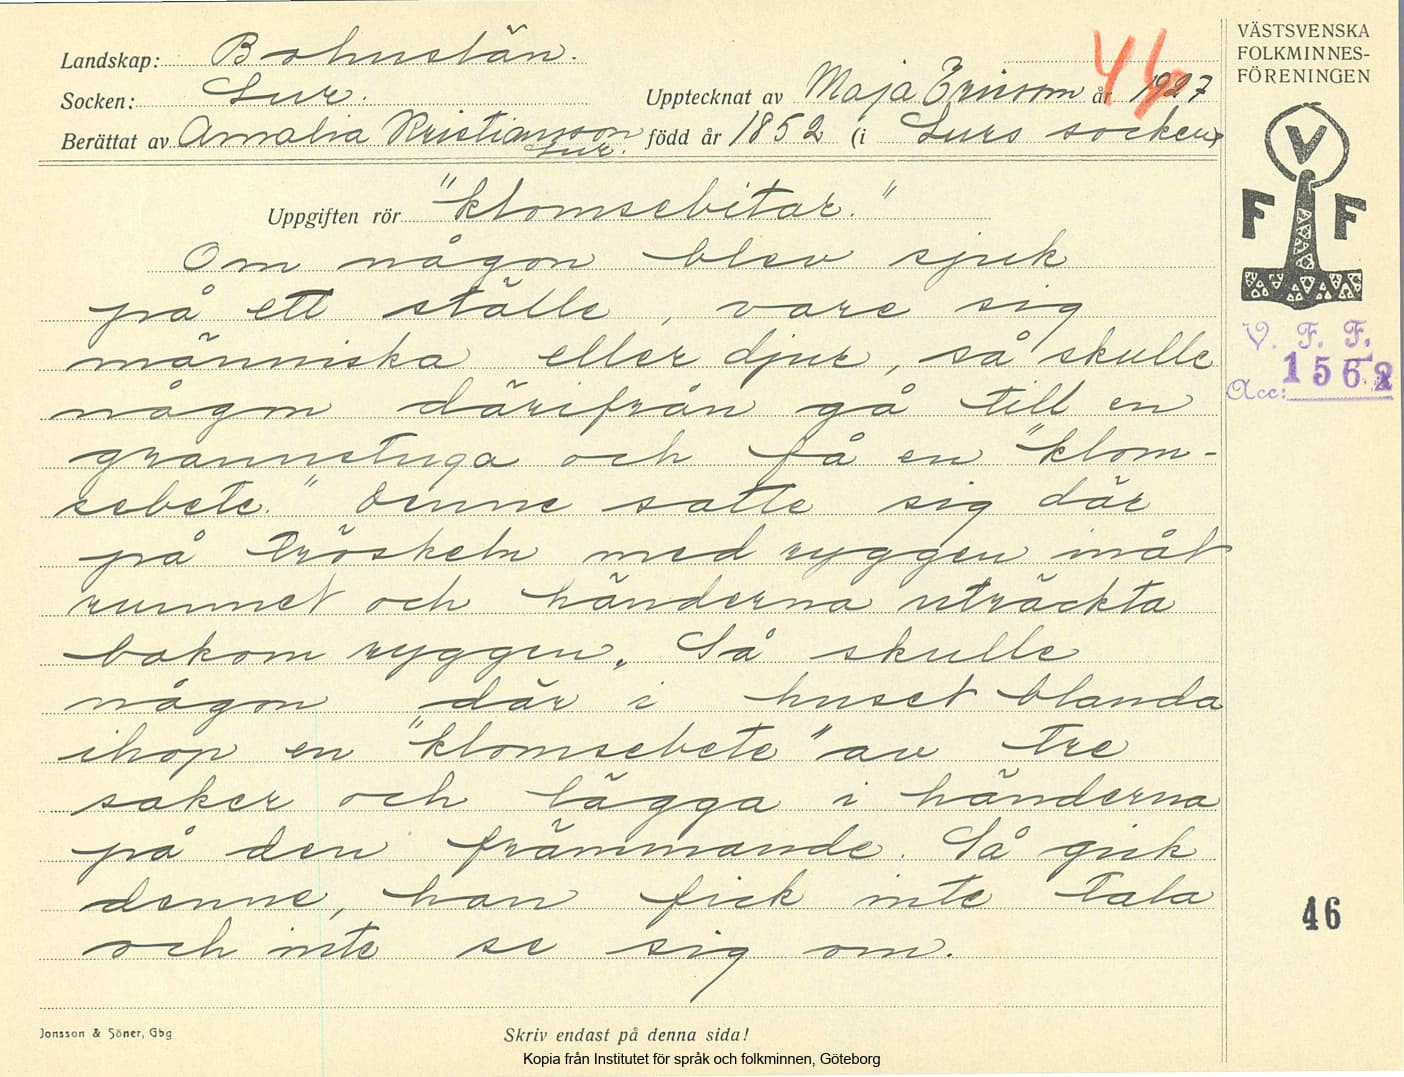 Landskap: Bohuslän.
Socken: Lur.
Upptecknat av Maja Ericson år 1927
Berättat av Amalia Kristiansson Lur. född år 1852 (i Lurs socken)
Uppgiften rör "klomsebitar."
Om någon blev sjuk
på ett ställe, vare sig
människa eller djur, så skulle
någon därifrån gå till en
grannstuga och få en "klom-
sebete." Denne satte sig där
på tröskeln med ryggen inåt
rummet och händerna uträckta
bakom ryggen. Så skulle
någon där i huset blanda
ihop en "klomsebete" av tre
saker och lägga i händerna
på den främmande. Så gick
denne, han fick inte tala
och inte se sig om.
Jonsson & Söner, Gbg
Skriv endast på denna sida!
Kopia från Institutet för språk och folkminnen, Göteborg
VÄSTSVENSKA
FOLKMINNES-
FÖRENINGEN
V
F F
V. F. F.
Acc: 1562
46